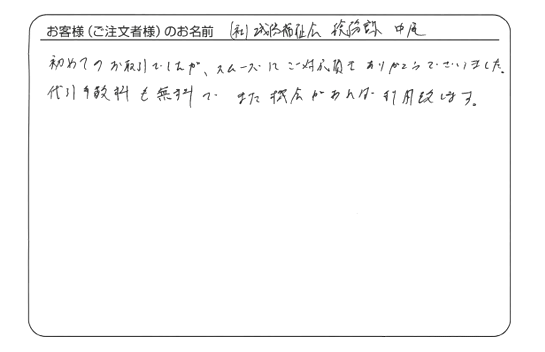 お客様(ご注文者様)のお名前 (社) 福祉会 総務課 中尾
初めてのお取引でしたが、スムーズにご対応頂きありがとうございました。
代引手数料も無料で また機会があれば利用致します。